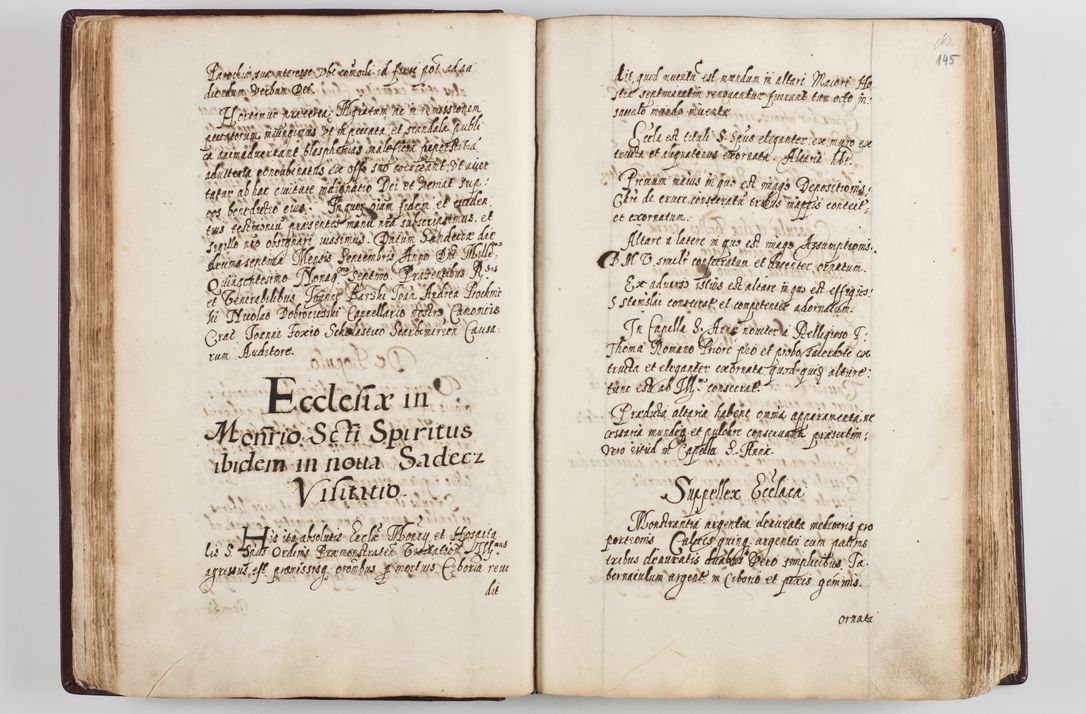 Parochiæ suæ interesse ubi comodi id fieri pot. ad au
diendum Verbum Dei.
Hortamur præterea Mgratum ne in remissionem
peccatorum iniungimus Ut in peccata et scandala publi
ca animadvertant blasphemias maleficia
adulteria concubinatus ex offo suo coerceant, Ut auer
tatur ab hac ciuitate indignatio Dei et Veniat sup:
eos benedictio eius. In quor. oium fidem et euiden
tus testimoniu præsentes manu nra subscripsimus et
Sigillo nro obsignari iussimus. Datum Sandeciæ die
decima septima Mensis Septembris Anno Dni Mille.o
Quingentesimo Nonag.mo Septimo Præsentibus R.dis
et Venerabilibus Joanne Barski Joan. Andrea Prochnic
ki Nicolao Dobrocieski Cancellario nostro Canonicis
Crac. Joanne Foxio Scholastico Scarbimirien Causa
rum Auditore.
Ecclesiæ in
Monrio Scti Spiritus
ibidem in noua Sadecz
Visitatio.
His ita absolutis Ecclæ Monry et Hospita
lis S. Spus Ordinis Præmonstraten Visitation Ill.mus
agressus est præmissisq. oronibus p mortuis Ciboria reui
dit
145
dit, quod inuentu est mundum in altari Maiori Ho
stiæ septimanatim renouantur fuerant tum octo in
sacculo mundo inuentæ
Eccla est tituli S. Spus eleganter ex muro ex
tructa et
exornata. Altaria hbt.
Primum maius in quo est imago Depositionis
Chri de cruce consecratu tribus mappis contect.
et exornatum.
Altare a latere in quo est imago Assumptionis
B.M.V. simili consecratum et decenter ornatum.
Ex aduerso istius est altare in quo est effigies
S. Stanislai consecrat. et competenter adornatum.
In Capella S. Annæ nouiter a Relligioso F.
Thoma Romano Priore pio et probo sacerdote ex
tructa et eleganter exornata quod quidẽ altare
tunc est ab Ill.mo consecrat.
Prædicta altaria habent omnia apparamenta ne
cessaria munda et pulchre conseruata præsertim
Vero istud in Capella S. Annæ.
Suppellex Ecclaca
Monstrantia argentea deaurata mediocris pro
portionis Calices quinq. argentei cum patinis
tribus deauratis duabus Vero simplicibus Ta.
bernaculum argent. in Ciborio et pixis gemmis.
ornata